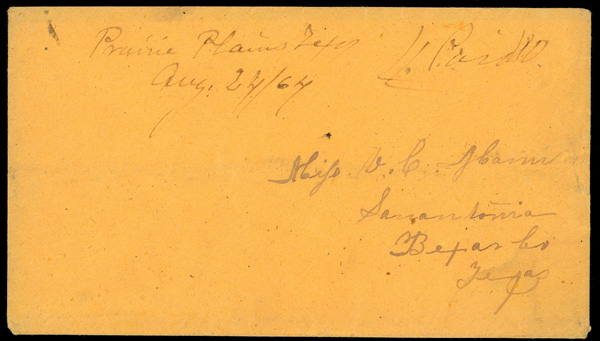 Prairie Plains Texas
Aug. 24/64
Paid 10.
Miss V. C.
Sanantonia
Bexar Co
Texas